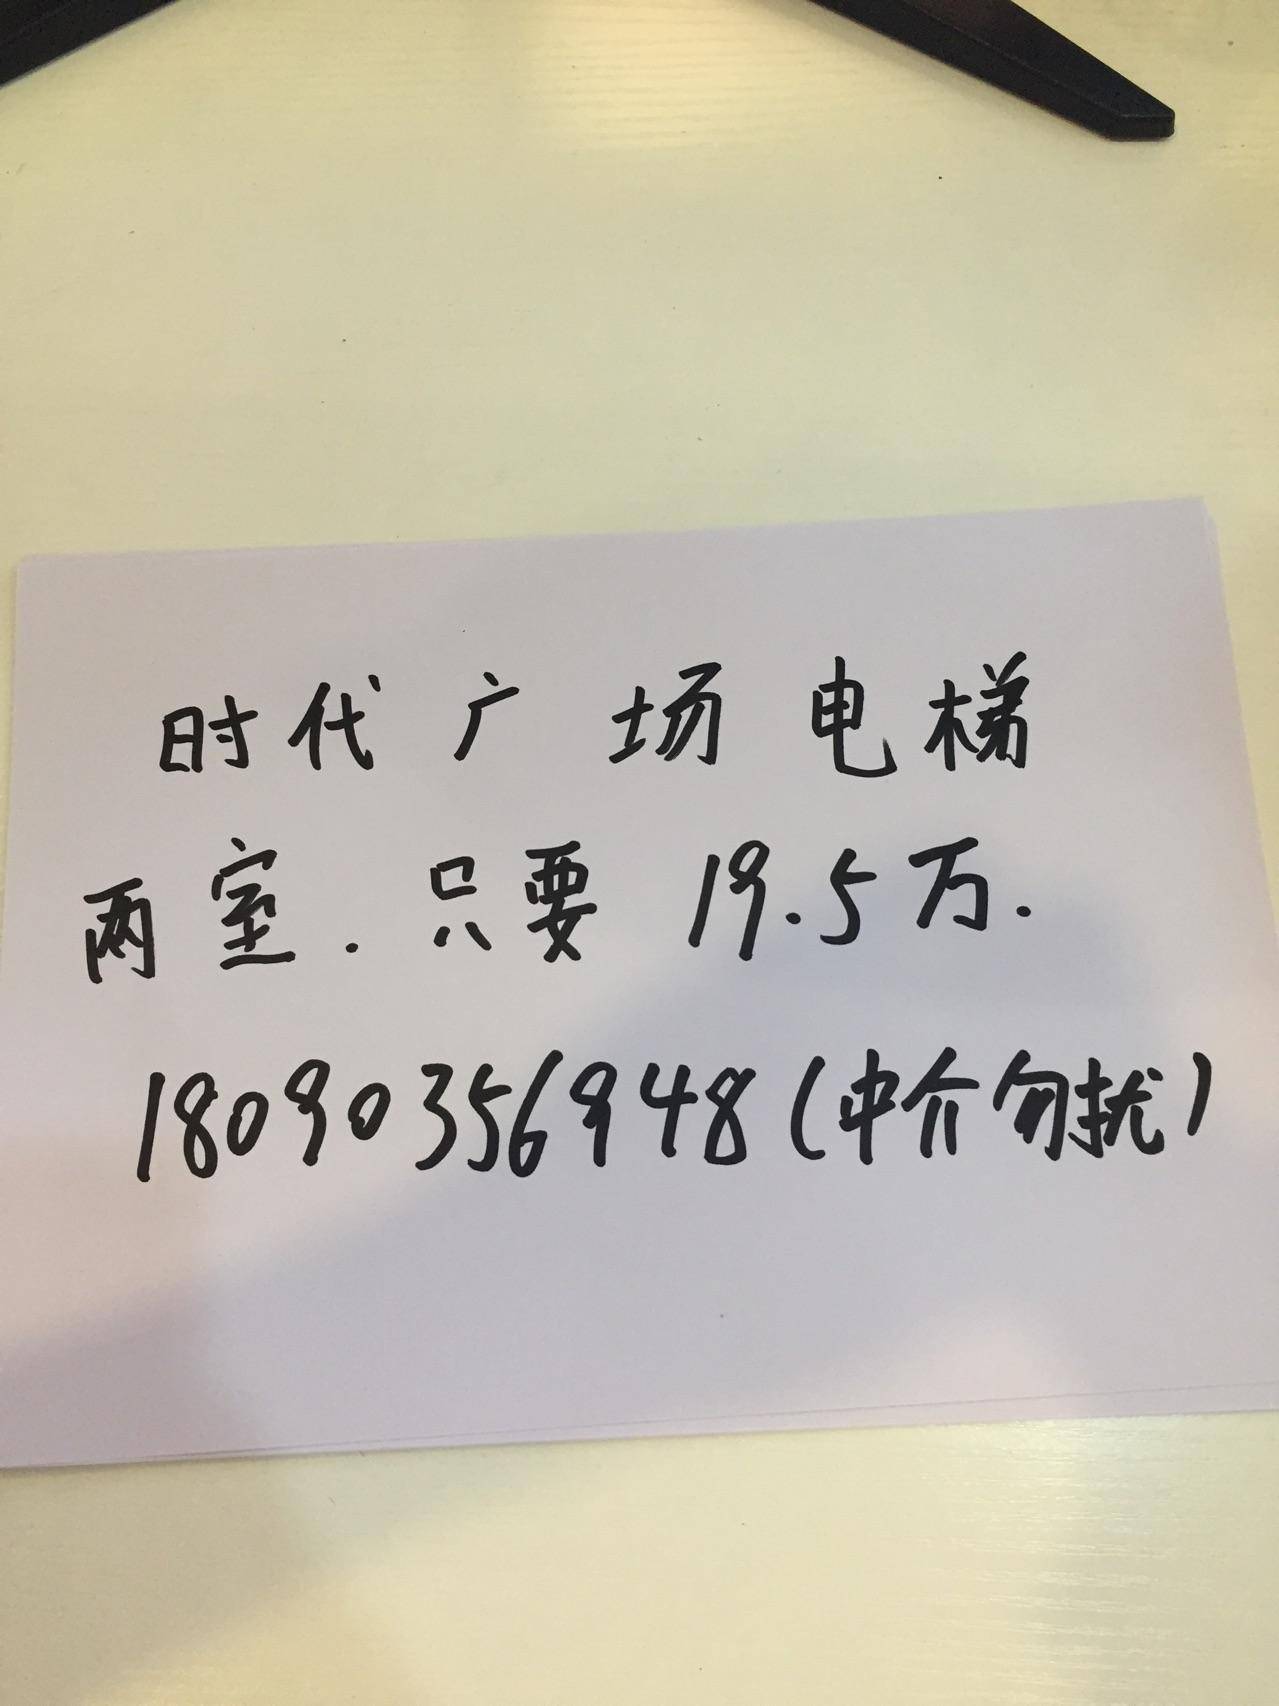 时代广场电梯
两室.只要19.5万.
18090356948(中介勿扰)